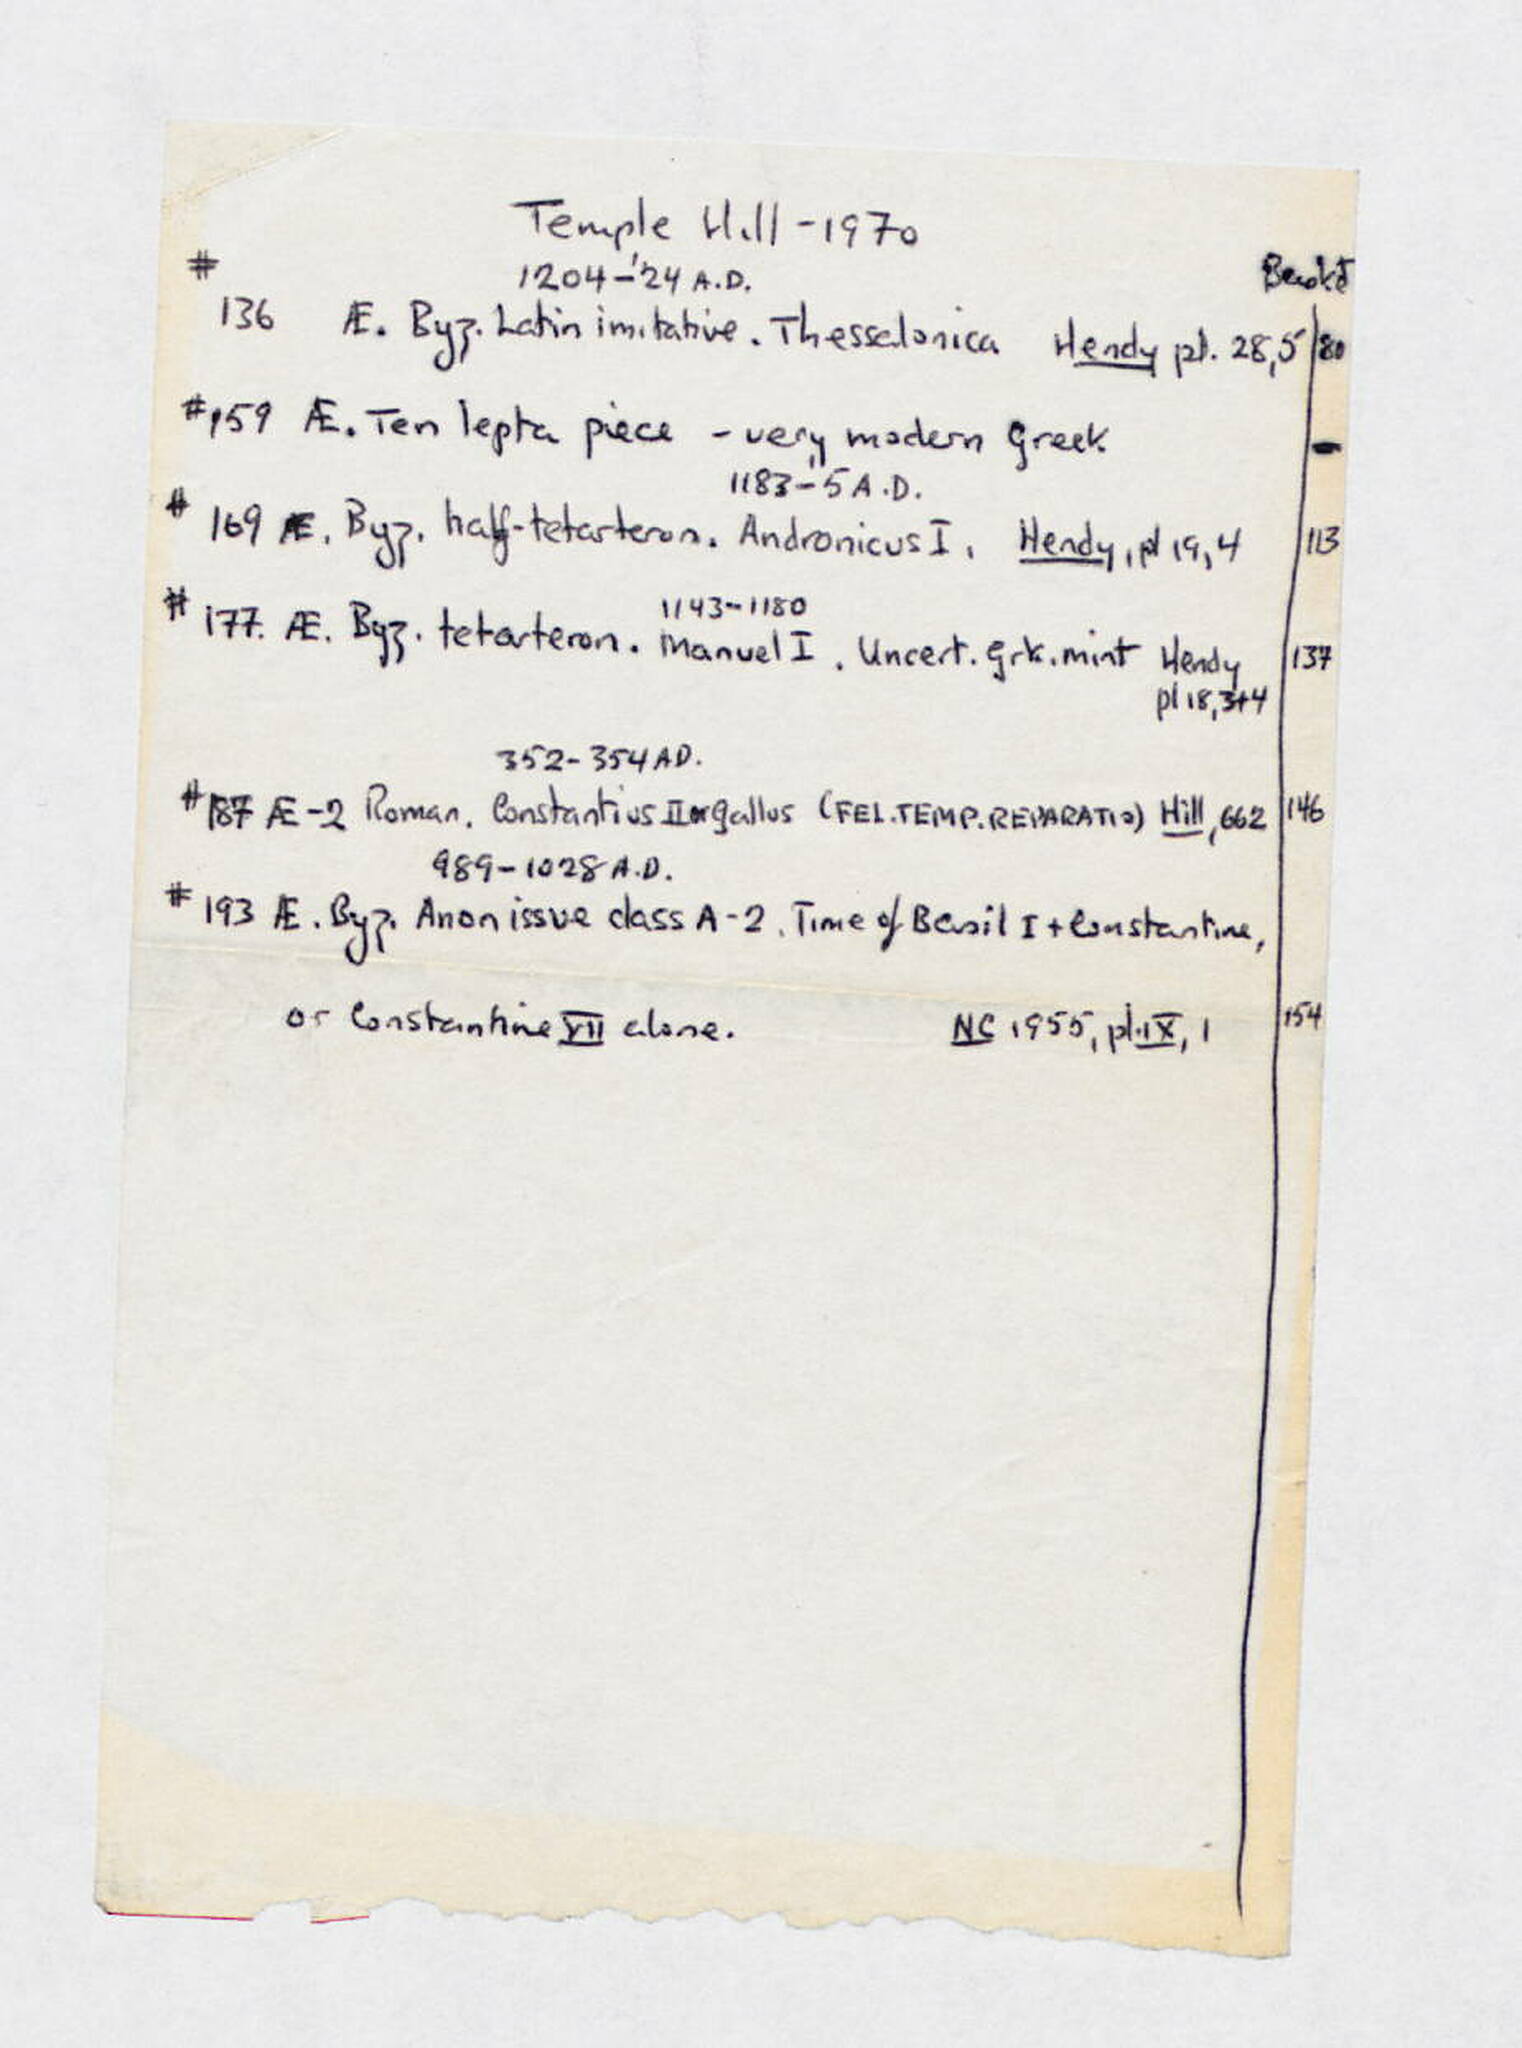 Temple Hill - 1970
#
1204-'24 A.D.
Basket
136 Æ. Byz. Latin imitative. Thessalonica Hendy pl. 28,5 80
#159 Æ. Ten lepta piece - very modern Greek. -
1183-'5 A.D.
# 169 Æ. Byz. half-tetarteron. Andronicus I. Hendy, pl 19, 4 113
1143-1180
# 177. Æ. Byz. tetarteron. Manuel I. Uncert. Grk. mint Hendy 137
pl 18, 3+4
352-354 AD.
#187 Æ-2 Roman. Constantius II or Gallus (FEL.TEMP.REPARATIO) Hill, 662 146
989-1028 A.D.
# 193 Æ. Byz. Anon issue class A-2. Time of Basil I + Constantine,
or Constantine VII alone. NC 1955, pl. IX, 1 154